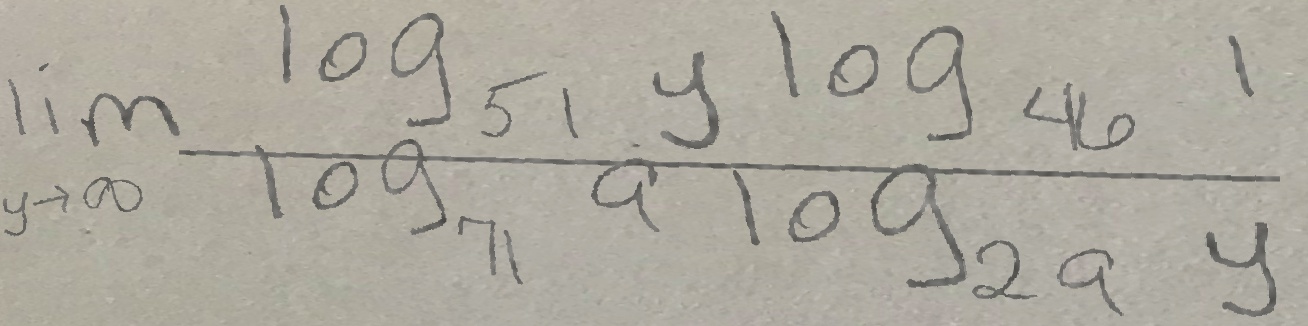 lim y→∞ log₅₁ y log₄₆ 1
log₇₁ a log₂ₐ y